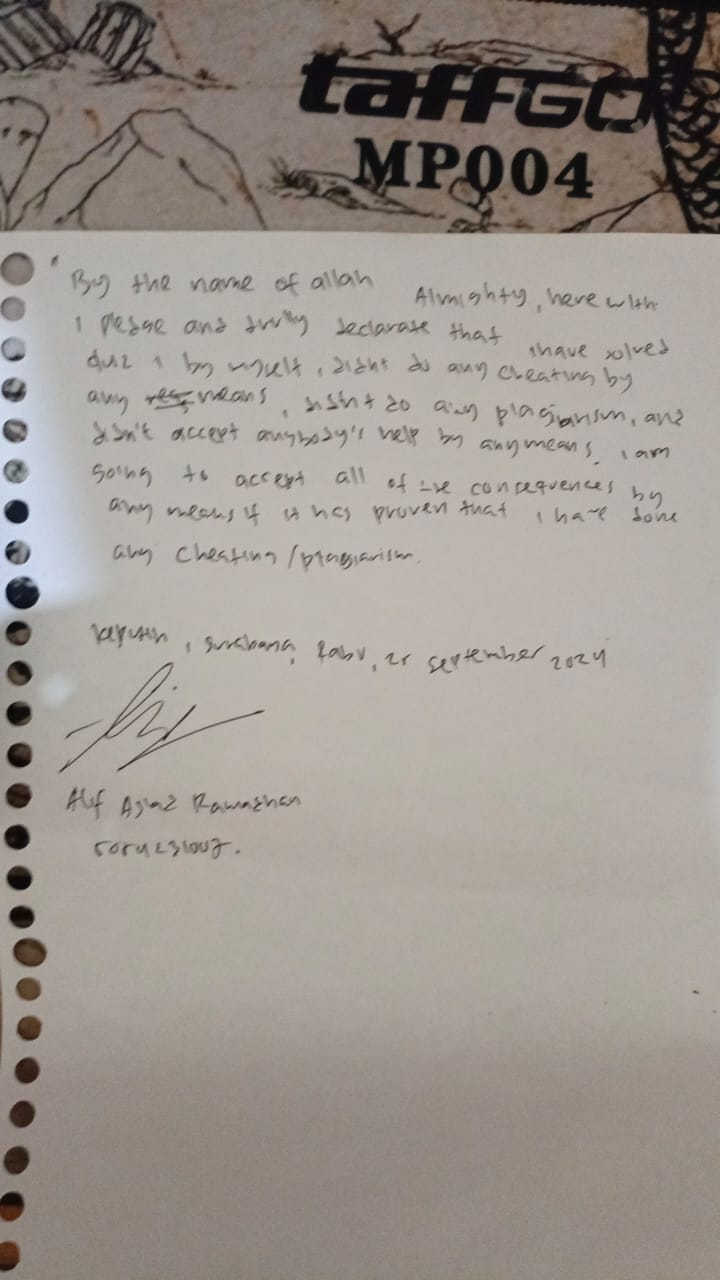 taffGO
MP004
" By the name of allah Almighty, here with
I pledge and trully declarate that i have solved
quiz 1 by myself, didn't do any cheating by
any means, didn't do any plagiarism, and
didn't accept anybody's help by any means. i am
going to accept all of the consequences by
any means if it has proven that i have done
any cheating/plagiarism.
Keputih, Surabaya, Rabu, 25 September 2024
Alif Ramadhan